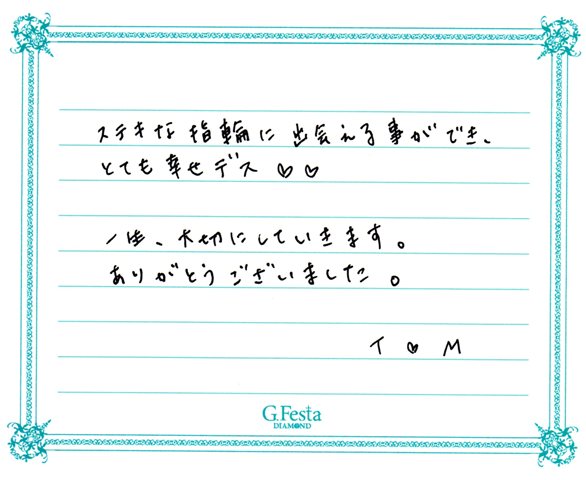 ステキな指輪に出会える事ができ、
とても幸せデス♡♡
一生、大切にしていきます。
ありがとうございました。
T ♡ M
G.Festa
DIAMOND